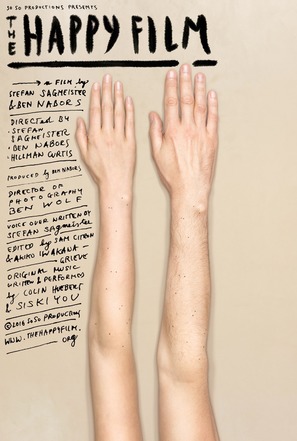 SO SO PRODUCTIONS PRESENTS
THE HAPPY FILM
a FILM by
STEFAN SAGMEISTER
& BEN NABORS
DIRECTED BY
·STEFAN
SAGMEISTER
·BEN NABORS
·HILLMAN CURTIS
PRODUCED by BEN NABORS
DIRECTOR OF
PHOTOGRAPHY
BEN WOLF
VOICE OVER WRITTEN BY
STEFAN SAGMEISTER
EDITED by SAM CITRON
& AKIKO IWAKAWA-
GRIEVE
ORIGINAL MUSIC
WRITTEN & PERFORMED
by COLIN HUEBERT
& SISKIYOU
©2016 SO SO PRODUCTIONS
WWW.THEHAPPYFILM.
ORG